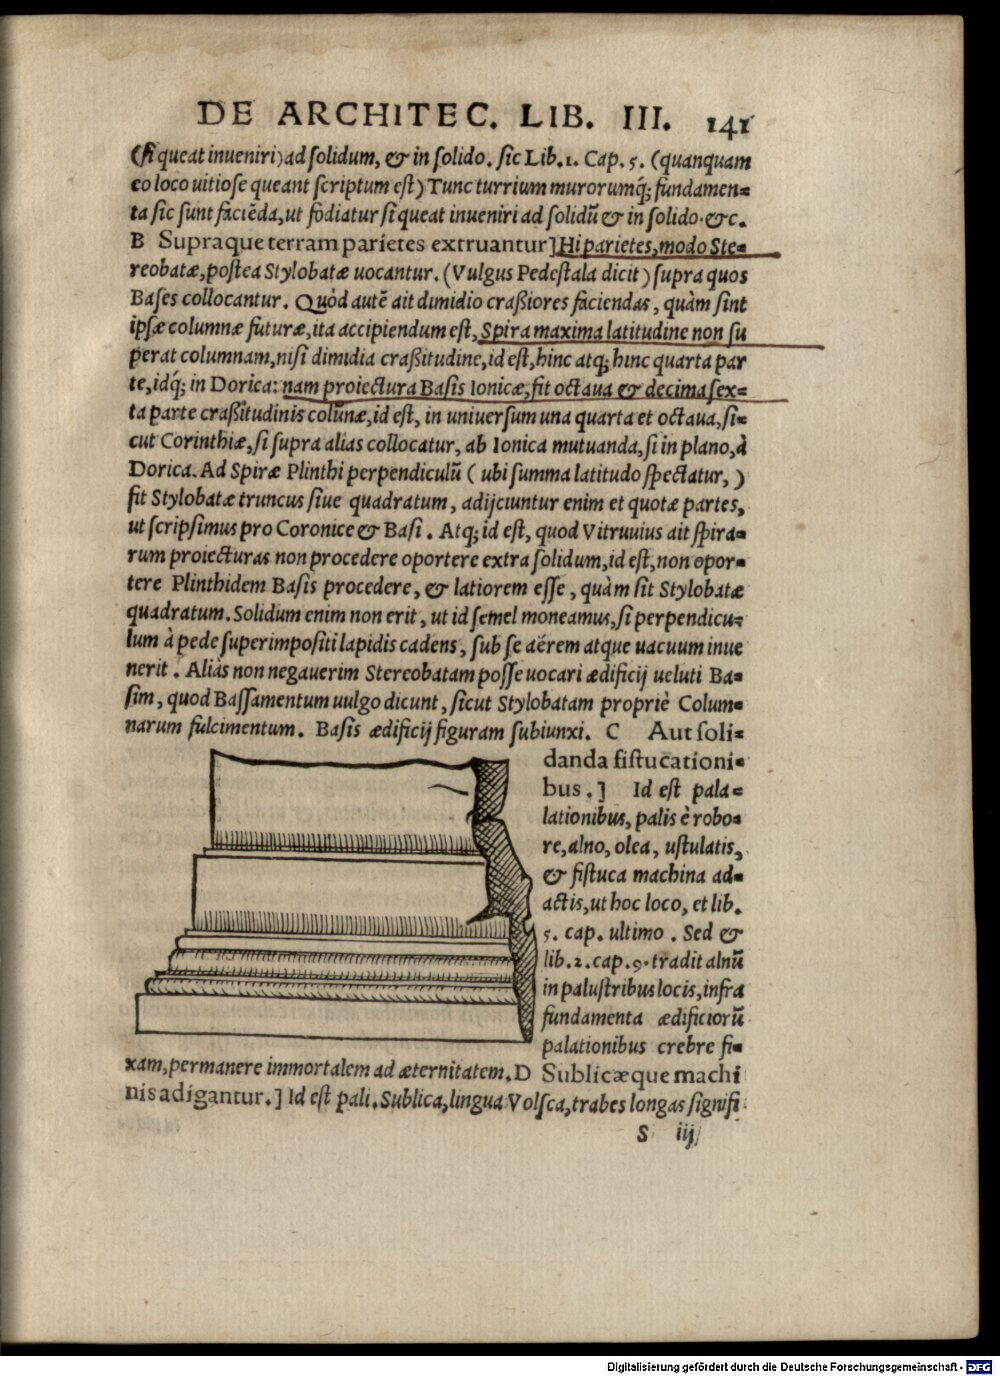 DE ARCHITEC. LIB. III. 141
(si queat inueniri) ad solidum, & in solido. sic Lib. 1. Cap. 5. (quanquam
eo loco uitiose queant scriptum est) Tunc turrium murorumq́; fundamen=
ta sic sunt faciẽda, ut fodiatur si queat inueniri ad solidũ & in solido. &c.
B Supraque terram parietes extruantur] Hi parietes, modo Ste=
reobatæ, postea Stylobatæ uocantur. (Vulgus Pedestala dicit) supra quos
Bases collocantur. Quòd autẽ ait dimidio craßiores faciendas, quàm sint
ipsæ columnæ futuræ, ita accipiendum est, Spira maxima latitudine non su
perat columnam, nisi dimidia craßitudine, id est, hinc atq; hinc quarta par
te, idq́; in Dorica: nam proiectura Basis Ionicæ, fit octaua & decimasex=
ta parte craßitudinis colũnæ, id est, in uniuersum una quarta et octaua, si=
cut Corinthiæ, si supra alias collocatur, ab Ionica mutuanda, si in plano, à
Dorica. Ad Spiræ Plinthi perpendiculũ (ubi summa latitudo spectatur,)
fit Stylobatæ truncus siue quadratum, adijciuntur enim et quotæ partes,
ut scripsimus pro Coronice & Basi. Atq; id est, quod Vitruuius ait spira=
rum proiecturas non procedere oportere extra solidum, id est, non opor=
tere Plinthidem Basis procedere, & latiorem esse, quàm sit Stylobatæ
quadratum. Solidum enim non erit, ut id semel moneamus, si perpendicu=
lum à pede superimpositi lapidis cadens, sub se aërem atque uacuum inue
nerit. Aliàs non negauerim Stereobatam posse uocari ædificij ueluti Ba=
sim, quod Bassamentum uulgo dicunt, sicut Stylobatam propriè Colum=
narum fulcimentum. Basis ædificij figuram subiunxi. C Aut soli=
danda fistucationi=
bus.] Id est pala=
lationibus, palis è robo=
re, alno, olea, ustulatis,
& fistuca machina ad=
actis, ut hoc loco, et lib.
5. cap. ultimo. Sed &
lib. 2. cap. 9. tradit alnũ
in palustribus locis, infra
fundamenta ædificiorũ
palationibus crebre fi=
xam, permanere immortalem ad æternitatem. D Sublicæque machi
nis adigantur.] Id est pali. Sublica, lingua Volsca, trabes longas signifi
S iij
Digitalisierung gefördert durch die Deutsche Forschungsgemeinschaft - DFG